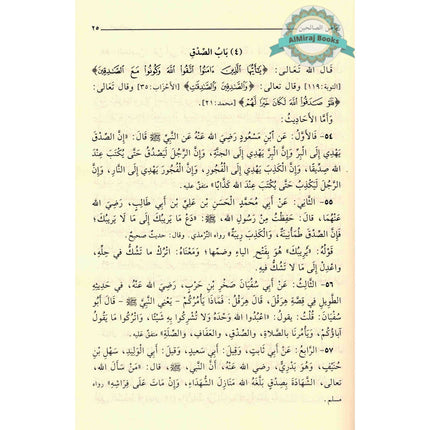 ٢٥
AlMiraj Books
(٤) بَابُ الصِّدْقِ
قَالَ اللهُ تَعَالَى: ﴿يَٰٓأَيُّهَا الَّذِينَ ءَامَنُوا۟ اتَّقُوا۟ اللَّهَ وَكُونُوا۟ مَعَ الصَّٰدِقِينَ﴾
[التوبة: ١١٩] وقال تعالى: ﴿وَالصَّٰدِقِينَ وَالصَّٰدِقَٰتِ﴾ [الأحْزاب: ٣٥] وقال تَعَالَى:
﴿فَلَوْ صَدَقُوا۟ اللَّهَ لَكَانَ خَيْرًا لَّهُمْ﴾ [محمد: ٢١].
وَأَمَّا الأَحَادِيثُ:
٥٤ – فَالأَوَّلُ: عَنِ ابْنِ مَسْعُودٍ رَضِيَ اللهُ عَنْهُ عَنِ النَّبِيِّ ﷺ قَالَ: «إِنَّ الصِّدْقَ
يَهْدِي إِلَى الْبِرِّ وَإِنَّ الْبِرَّ يَهْدِي إِلَى الجَنَّةِ، وَإِنَّ الرَّجُلَ لَيَصْدُقُ حَتَّى يُكْتَبَ عِنْدَ
اللهِ صِدِّيقًا، وَإِنَّ الْكَذِبَ يَهْدِي إِلَى الْفُجُورِ، وَإِنَّ الْفُجُورَ يَهْدِي إِلَى النَّارِ، وَإِنَّ
الرَّجُلَ لَيَكْذِبُ حَتَّى يُكْتَبَ عِنْدَ اللهِ كَذَّابًا» متفقٌ عليه.
٥٥ – الثَّانِي: عَنْ أَبِي مُحَمَّدٍ الْحَسَنِ بْنِ عَلِيِّ بْنِ أَبِي طَالِبٍ، رَضِيَ اللهُ
عَنْهُمَا، قَالَ: حَفِظْتُ مِنْ رَسُولِ اللهِ، ﷺ: «دَعْ مَا يَرِيبُكَ إِلَى مَا لَا يَرِيبُكَ؛
فَإِنَّ الصِّدْقَ طُمَأْنِينَةٌ، وَالْكَذِبَ رِيبَةٌ» رواه التِّرْمذي. وقال: حديثٌ صحيحٌ.
قَوْلُهُ: «يُرِيبُكَ» هُوَ بفتحِ الياءِ وضَمِّها؛ ومَعْنَاهُ: اتْرُكْ مَا تَشُكُّ في حِلِّهِ،
وَاعْدِلْ إِلَى مَا لَا تَشُكُّ فِيهِ.
٥٦ – الثَّالِثُ: عَنْ أَبِي سُفْيَانَ صَخْرِ بْنِ حَرْبٍ، رَضِيَ اللهُ عَنْهُ، فِي حَدِيثِهِ
الطَّوِيلِ فِي قِصَّةِ هِرَقْلَ، قَالَ هِرَقْلُ: فَمَاذَا يَأْمُرُكُمْ – يَعْنِي النَّبِيَّ ﷺ – قَالَ أَبُو
سُفْيَانَ: قُلْتُ: يَقُولُ: «اعْبُدُوا اللهَ وَحْدَهُ وَلَا تُشْرِكُوا بِهِ شَيْئًا، وَاتْرُكُوا مَا يَقُولُ
آبَاؤُكُمْ، وَيَأْمُرُنَا بِالصَّلَاةِ، وَالصِّدْقِ، وَالعَفَافِ، وَالصِّلَةِ» متفقٌ عليه.
٥٧ – الرَّابِعُ: عَنْ أَبِي ثَابِتٍ، وَقِيلَ: أَبِي سَعِيدٍ، وَقِيلَ: أَبِي الْوَلِيدِ، سَهْلِ بْنِ
حُنَيْفٍ، وَهُوَ بَدْرِيٌّ، رَضِيَ اللهُ عَنْهُ، أَنَّ النَّبِيَّ، ﷺ، قَالَ: «مَنْ سَأَلَ اللهَ،
تَعَالَى، الشَّهَادَةَ بِصِدْقٍ بَلَّغَهُ اللهُ مَنَازِلَ الشُّهَدَاءِ، وَإِنْ مَاتَ عَلَى فِرَاشِهِ» رواه
مسلم.